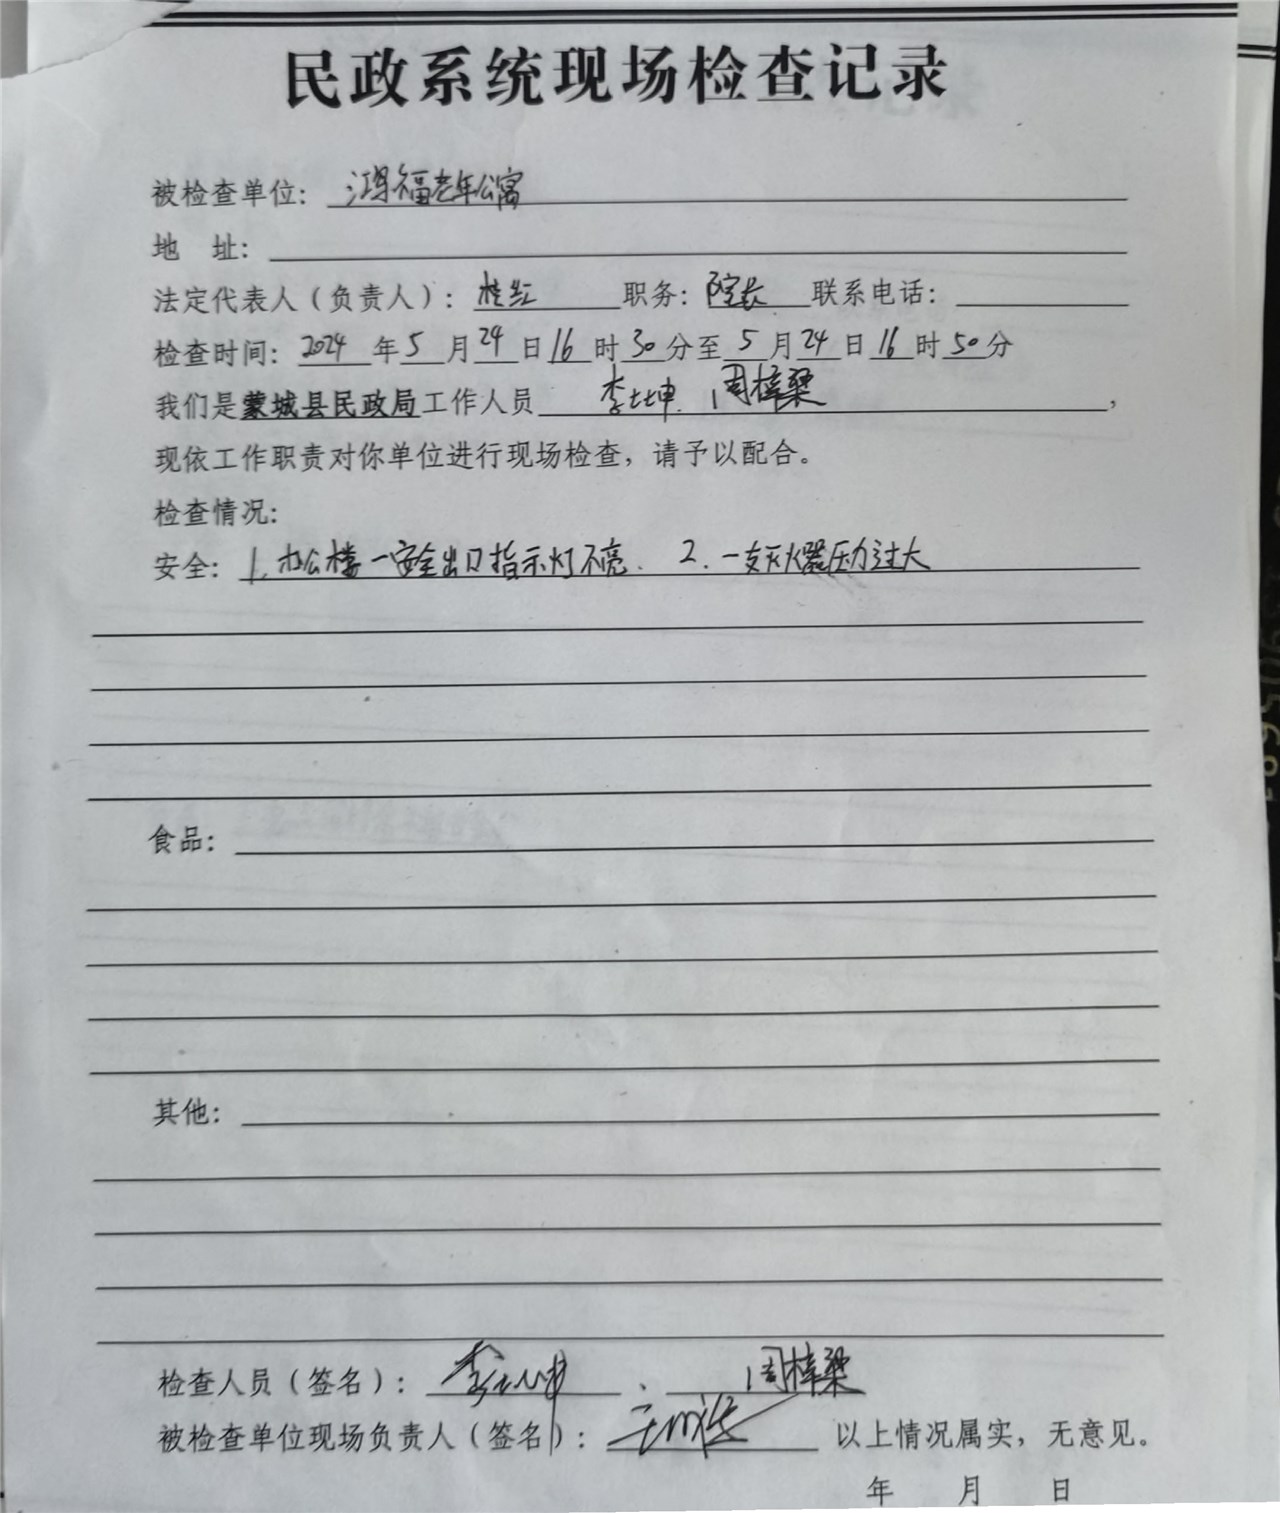 民政系统现场检查记录
被检查单位：鸿福老年公寓
地 址：
法定代表人（负责人）：桂红 职务：院长 联系电话：
检查时间：2024年5月24日16时30分至5月24日16时50分
我们是蒙城县民政局工作人员 李士坤、周梓梁，
现依工作职责对你单位进行现场检查，请予以配合。
检查情况：
安全：1.办公楼一安全出口指示灯不亮. 2.一支灭火器压力过大
食品：
其他：
检查人员（签名）：李士坤、周梓梁
被检查单位现场负责人（签名）： 以上情况属实，无意见。
年 月 日